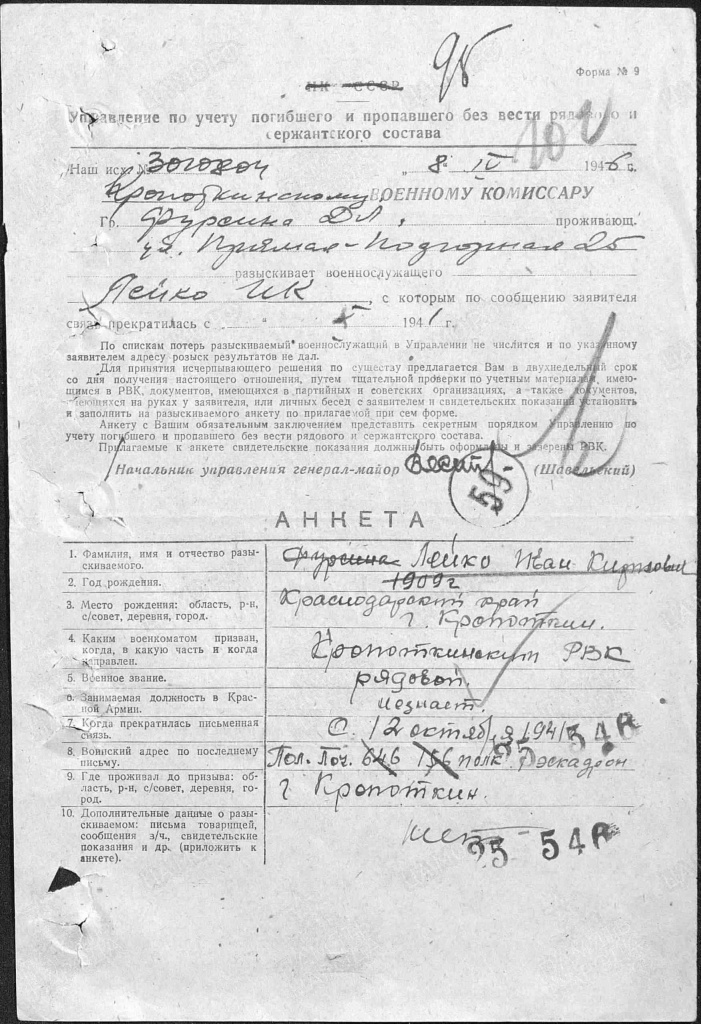 96
Форма № 9
НК СССР
Управление по учету погибшего и пропавшего без вести рядового и
сержантского состава
Наш исх. № „ 8 " IV 1946 г.
Кропоткинскому ВОЕННОМУ КОМИССАРУ
Гр. Фурсина Д.Л. проживающ.
ул. Прямая-Подгорная 25
разыскивает военнослужащего
Лейко И К, с которым по сообщению заявителя
связь прекратилась с „ " X 1941 г.
По спискам потерь разыскиваемый военнослужащий в Управлении не числится и по указанному
заявителем адресу розыск результатов не дал.
Для принятия исчерпывающего решения по существу предлагается Вам в двухнедельный срок
со дня получения настоящего отношения, путем тщательной проверки по учетным материалам, имею-
щимся в РВК, документов, имеющихся в партийных и советских организациях, а также документов,
имеющихся на руках у заявителя, или личных бесед с заявителем и свидетельских показаний установить
и заполнить на разыскиваемого анкету по прилагаемой при сем форме.
Анкету с Вашим обязательным заключением представить секретным порядком Управлению по
учету погибшего и пропавшего без вести рядового и сержантского состава.
Прилагаемые к анкете свидетельские показания должны быть оформлены и заверены РВК.
Начальник управления генерал-майор (Шавельский)
59.
АНКЕТА
1. Фамилия, имя и отчество разы-
скиваемого.
Фурсина Лейко Иван
2. Год рождения.
1909 г
3. Место рождения: область, р-н,
с/совет, деревня, город.
Краснодарский край
г. Кропоткин.
4. Каким военкоматом призван,
когда, в какую часть и когда
направлен.
Кропоткинским РВК
5. Военное звание.
рядовой.
6. Занимаемая должность в Крас-
ной Армии.
неизнаст.
7. Когда прекратилась письменная
связь.
С 12 октября 1941
95 54
8. Воинский адрес по последнему
письму.
Пол. Поч. 646 156 полк эскадрон
9. Где проживал до призыва: об-
ласть, р-н, с/совет, деревня, го-
род.
г Кропоткин.
10. Дополнительные данные о разы-
скиваемом: письма товарищей,
сообщения з/ч., свидетельские
показания и др. (приложить к
анкете).
95 54